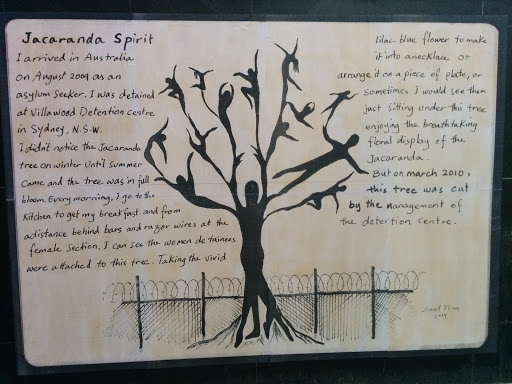 Jacaranda Spirit
I arrived in Australia
on August 2009 as an
asylum seeker. I was detained
at Villawood Detention centre
in Sydney, N.S.W.
I didn't notice the Jacaranda
tree on winter until summer
came and the tree was in full
bloom. Every morning, I go to the
Kitchen to get my breakfast and from
a distance behind bars and razor wires at the
female section, I can see the women detainees
were attached to this tree. Taking the vivid
lilac-blue flower to make
it into a necklace or
arrange it on a piece of plate, or
sometimes I would see them
just sitting under this tree
enjoying the breathtaking
floral display of the
Jacaranda.
But on march 2010,
this tree was cut
by the management of
the detention centre.